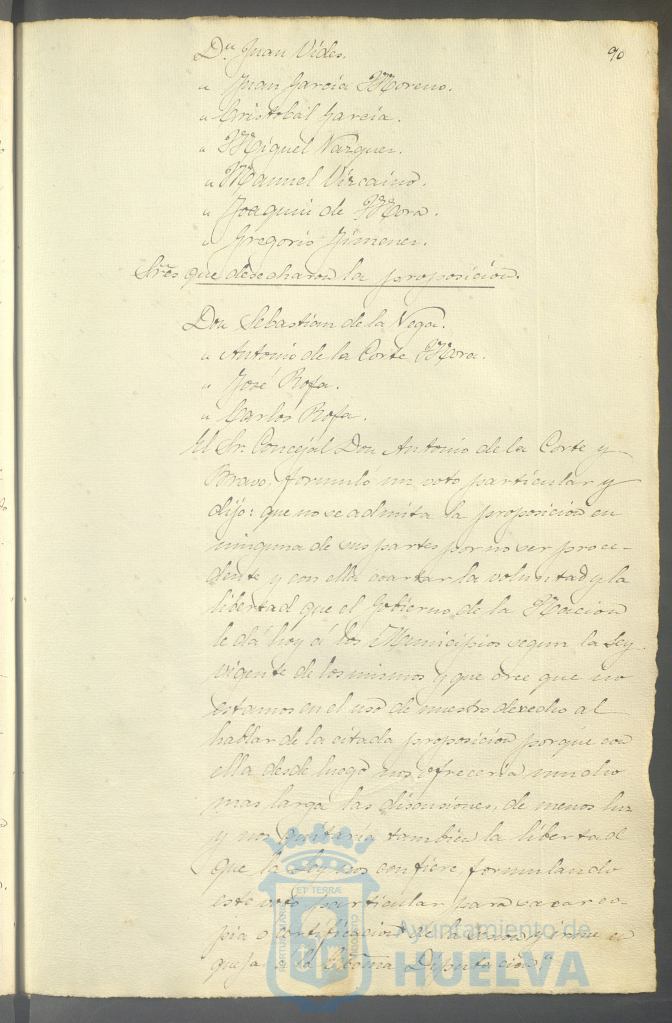 90
Dn. Juan Vides.
" Juan García Moreno.
" Cristobal García.
" Miguel Vazquez.
" Manuel Vizcaino.
" Joaquin de Mora.
" Gregorio Jimenez.
Sres que desecharon la proposicion.
Don Sebastian de la Vega.
" Antonio de la Corte Mora.
" José Rofa.
" Carlos Rofa.
El Sr. Concejal Don Antonio de la Corte y
Bravo, formuló un voto particular y
dijo: que no se admita la proposicion en
ninguna de sus partes por no ser proce-
dente y con ella coartar la voluntad y la
libertad que el Gobierno de la Nacion
le dá hoy á los Municipios segun la Ley
vigente de los mismos y que cree que no
estamos en el uso de nuestro derecho al
hablar de la citada proposicion porque con
ella desde luego nos ofreceria mucho
mas larga las discusiones, de menos luz
y nos quitaria tambien la libertad
que la Ley nos confiere, formulando
este voto particular para sacar co-
pia o certificacion de la y irme en
queja a la Excma Diputacion.
Ayuntamiento de
HUELVA